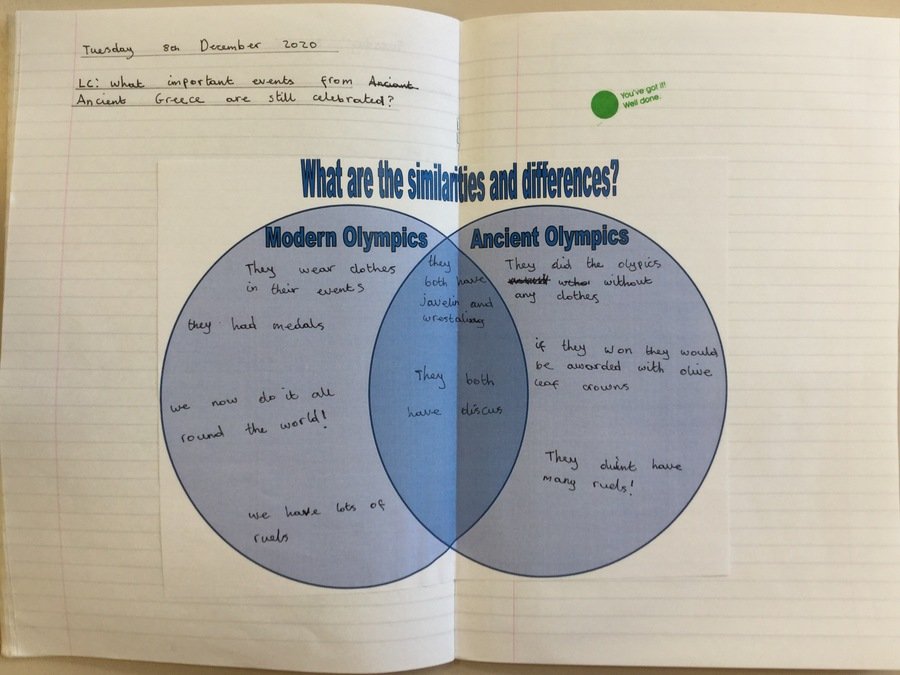 Tuesday 8th December 2020
LC: What important events from Ancient
Ancient Greece are still celebrated?
You've got it!
Well done.
What are the similarities and differences?
Modern Olympics
They wear clothes
in their events
they had medals
we now do it all
round the world!
we have lots of
ruels
they
both have
javelin and
wrestaling
They both
have discus
Ancient Olympics
They did the olypics
without
any clothes
if they won they would
be awarded with olive
leaf crowns
They didnt have
many ruels!